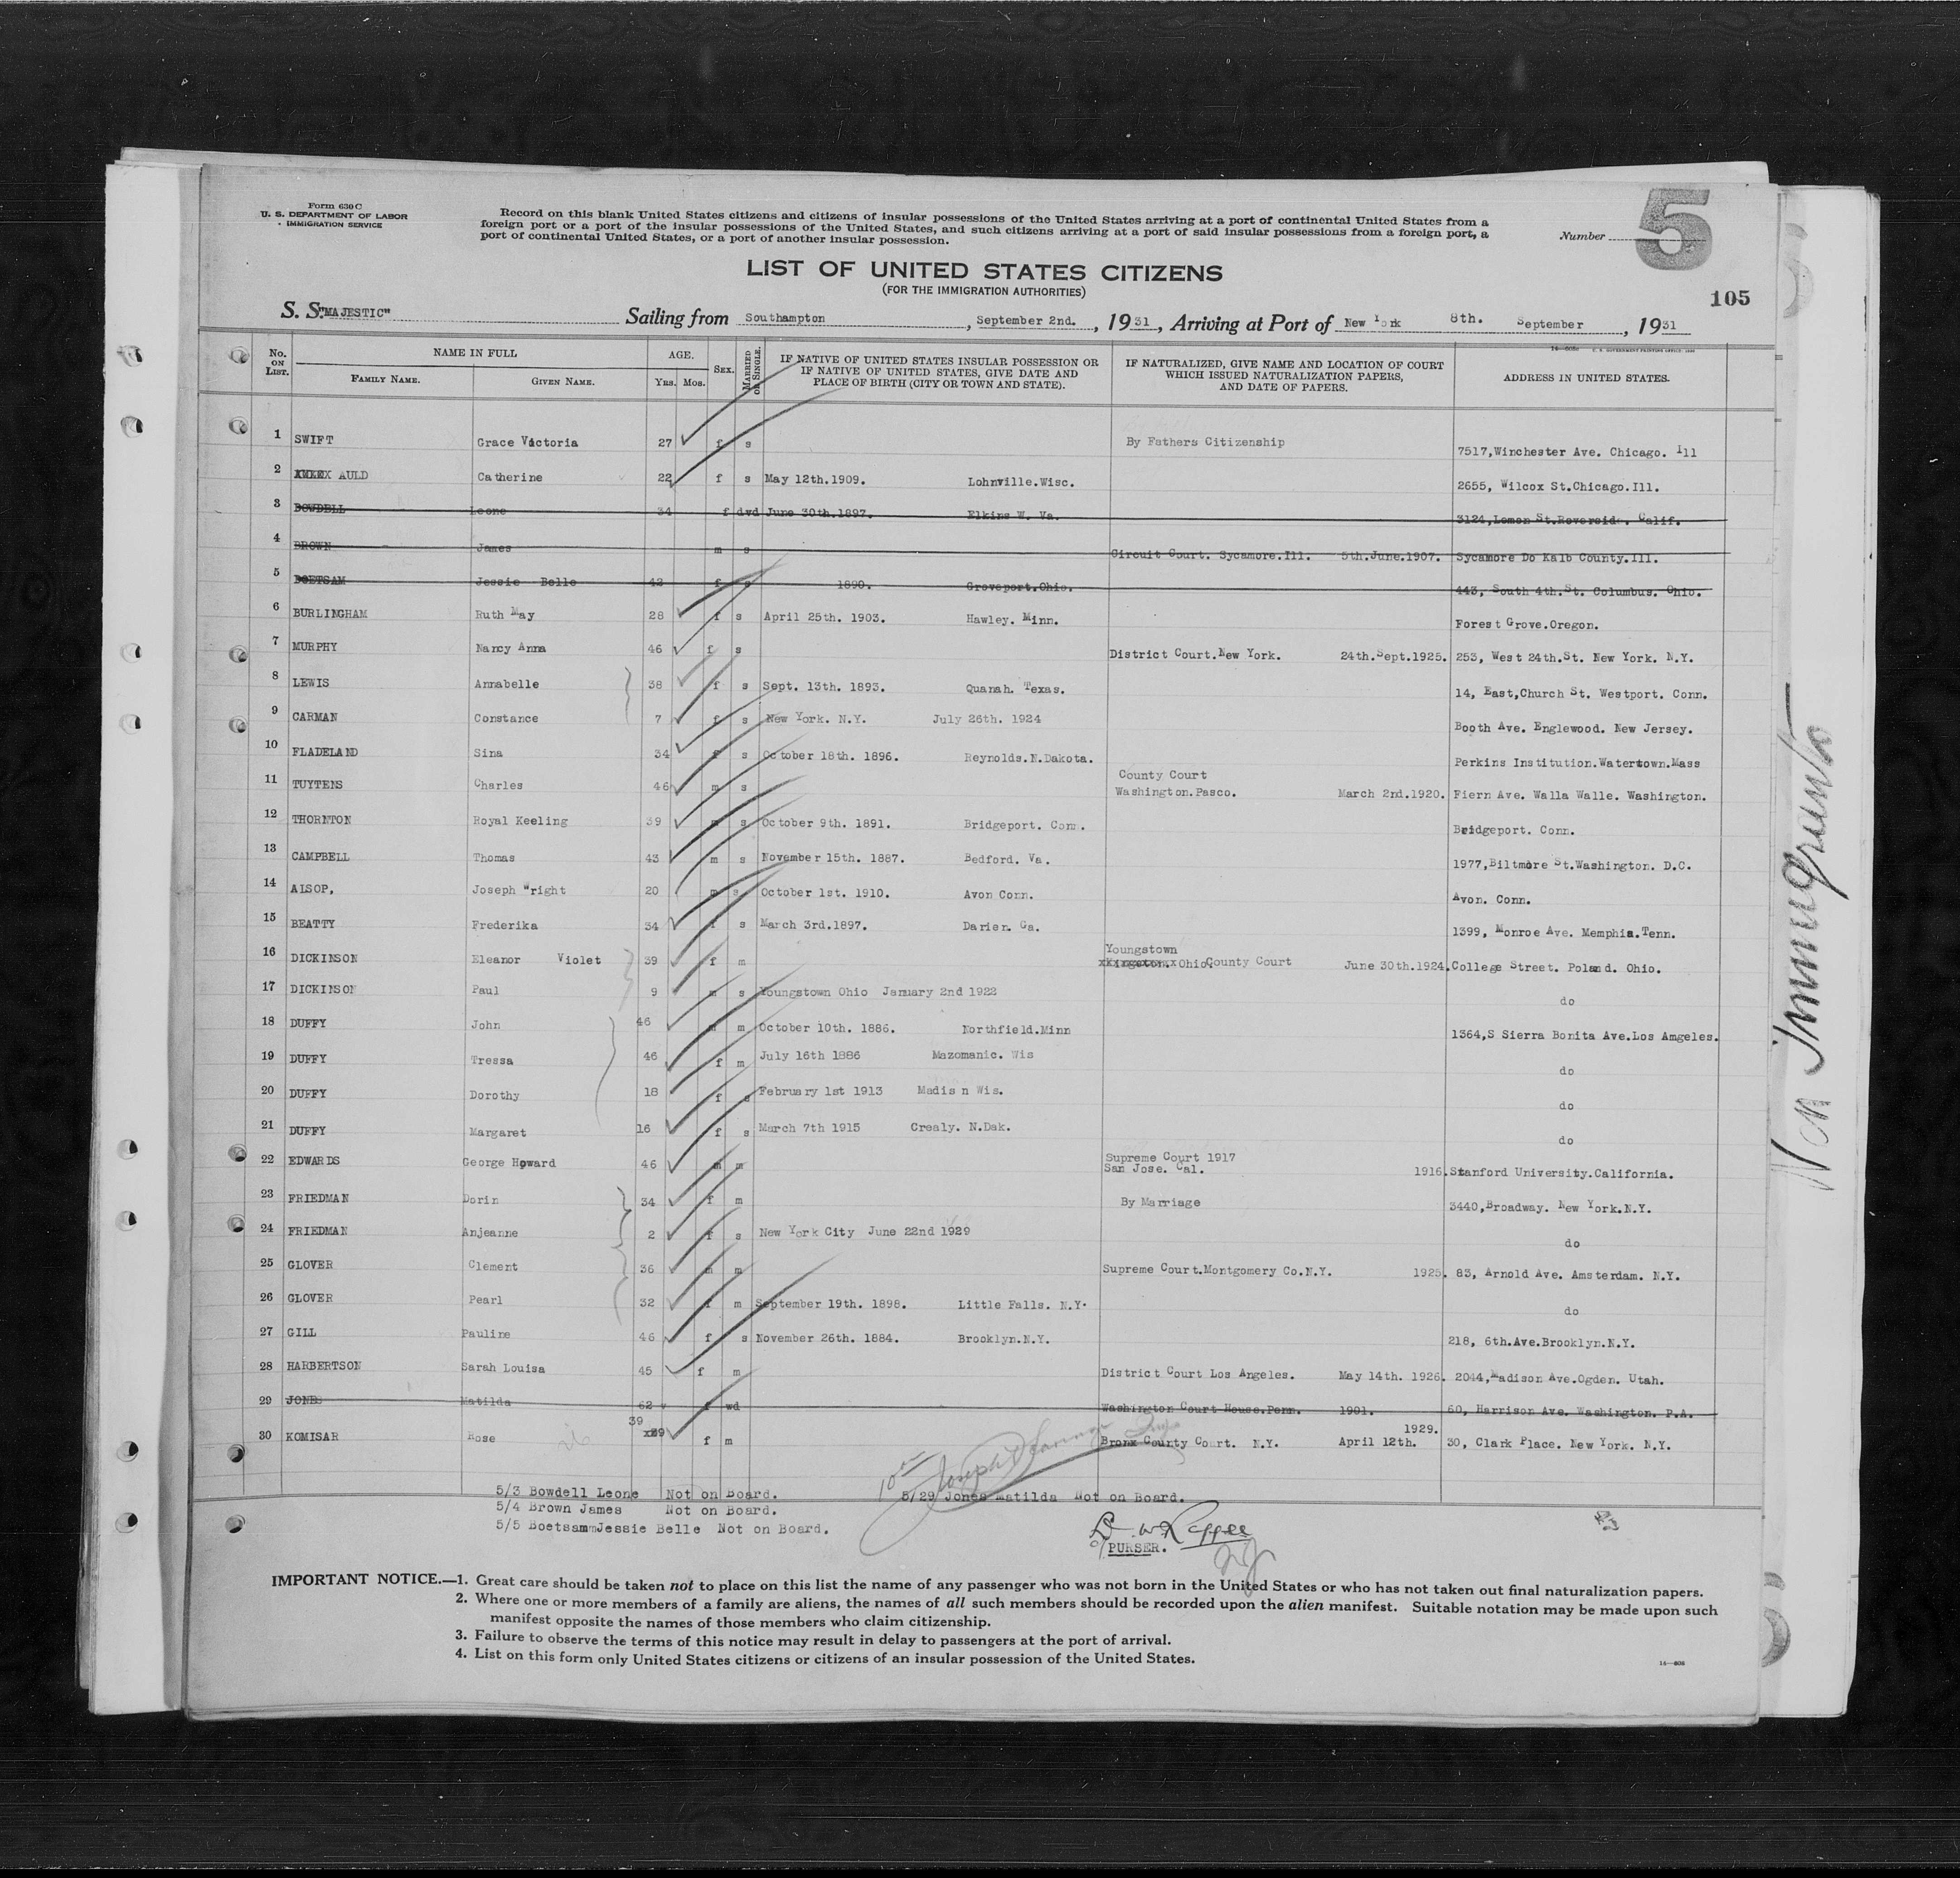 Form 630 C
U. S. DEPARTMENT OF LABOR
IMMIGRATION SERVICE
Record on this blank United States citizens and citizens of insular possessions of the United States arriving at a port of continental United States from a
foreign port or a port of the insular possessions of the United States, and such citizens arriving at a port of said insular possessions from a foreign port, a
port of continental United States, or a port of another insular possession.
Number 5
LIST OF UNITED STATES CITIZENS
(FOR THE IMMIGRATION AUTHORITIES)
105
S. S. "MAJESTIC" Sailing from Southampton, September 2nd., 1931, Arriving at Port of New York 8th. September, 1931
No. ON LIST. NAME IN FULL FAMILY NAME. GIVEN NAME. AGE. YRS. MOS. SEX. MARRIED OR SINGLE. IF NATIVE OF UNITED STATES INSULAR POSSESSION OR IF NATIVE OF UNITED STATES, GIVE DATE AND PLACE OF BIRTH (CITY OR TOWN AND STATE). IF NATURALIZED, GIVE NAME AND LOCATION OF COURT WHICH ISSUED NATURALIZATION PAPERS, AND DATE OF PAPERS. ADDRESS IN UNITED STATES.
1 SWIFT Grace Victoria 27 f s By Fathers Citizenship 7517,Winchester Ave. Chicago. Ill
2 AULD Catherine 22 f s May 12th.1909. Lohnville.Wisc. 2655, Wilcox St.Chicago.Ill.
3 BOWDELL Leone 34 f dvd June 30th.1897. Elkins W. Va. 3124,Lemon St.Roverside. Calif.
4 BROWN James m s Circuit Court. Sycamore.Ill. 5th.June.1907. Sycamore Do Kalb County.Ill.
5 BOETSAM Jessie Belle 42 f s 1890. Groveport.Ohio. 443, South 4th.St. Columbus. Ohio.
6 BURLINGHAM Ruth May 28 f s April 25th. 1903. Hawley. Minn. Forest Grove.Oregon.
7 MURPHY Nancy Anna 46 f s District Court.New York. 24th.Sept.1925. 253, West 24th.St. New York. N.Y.
8 LEWIS Annabelle 38 f s Sept. 13th. 1893. Quanah. Texas. 14, East,Church St. Westport. Conn.
9 CARMAN Constance 7 f s New York. N.Y. July 26th. 1924 Booth Ave. Englewood. New Jersey.
10 FLADELAND Sina 34 f s October 18th. 1896. Reynolds.N.Dakota. Perkins Institution.Watertown.Mass
11 TUYTENS Charles 46 m s County Court Washington.Pasco. March 2nd.1920. Fiern Ave. Walla Walle. Washington.
12 THORNTON Royal Keeling 39 m s October 9th. 1891. Bridgeport. Conn. Bridgeport. Conn.
13 CAMPBELL Thomas 43 m s November 15th. 1887. Bedford. Va. 1977,Biltmore St.Washington. D.C.
14 ALSOP, Joseph Wright 20 m s October 1st. 1910. Avon Conn. Avon. Conn.
15 BEATTY Frederika 34 f s March 3rd.1897. Darien. Ga. 1399, Monroe Ave. Memphis.Tenn.
16 DICKINSON Eleanor Violet 39 f m Youngstown Ohio. County Court June 30th.1924. College Street. Poland. Ohio.
17 DICKINSON Paul 9 m s Youngstown Ohio January 2nd 1922 do
18 DUFFY John 46 m m October 10th. 1886. Northfield.Minn 1364,S Sierra Bonita Ave.Los Amgeles.
19 DUFFY Tressa 46 f m July 16th 1886 Mazomanic. Wis do
20 DUFFY Dorothy 18 f s February 1st 1913 Madis n Wis. do
21 DUFFY Margaret 16 f s March 7th 1915 Crealy. N.Dak. do
22 EDWARDS George Howard 46 m m Supreme Court 1917 San Jose. Cal. 1916. Stanford University.California.
23 FRIEDMAN Dorin 34 f m By Marriage 3440,Broadway. New York.N.Y.
24 FRIEDMAN Anjeanne 2 f s New York City June 22nd 1929 do
25 GLOVER Clement 36 m m Supreme Court.Montgomery Co.N.Y. 1925. 83, Arnold Ave. Amsterdam. N.Y.
26 GLOVER Pearl 32 f m September 19th. 1898. Little Falls. N.Y. do
27 GILL Pauline 46 f s November 26th. 1884. Brooklyn.N.Y. 218, 6th.Ave.Brooklyn.N.Y.
28 HARBERTSON Sarah Louisa 45 f m District Court Los Angeles. May 14th. 1926. 2044,Madison Ave.Ogden. Utah.
29 JONES Matilda 62 f wd Washington Court House.Penn. 1901. 60, Harrison Ave. Washington. P.A.
30 KOMISAR Rose 39 f m Bronx County Court. N.Y. April 12th. 1929. 30, Clark Place. New York. N.Y.
5/3 Bowdell Leone Not on Board. 5/29 Jones Matilda Not on Board.
5/4 Brown James Not on Board.
5/5 BoetsammJessie Belle Not on Board.
PURSER.
IMPORTANT NOTICE.—1. Great care should be taken not to place on this list the name of any passenger who was not born in the United States or who has not taken out final naturalization papers.
2. Where one or more members of a family are aliens, the names of all such members should be recorded upon the alien manifest. Suitable notation may be made upon such
manifest opposite the names of those members who claim citizenship.
3. Failure to observe the terms of this notice may result in delay to passengers at the port of arrival.
4. List on this form only United States citizens or citizens of an insular possession of the United States.
14—608
Non Immigrants